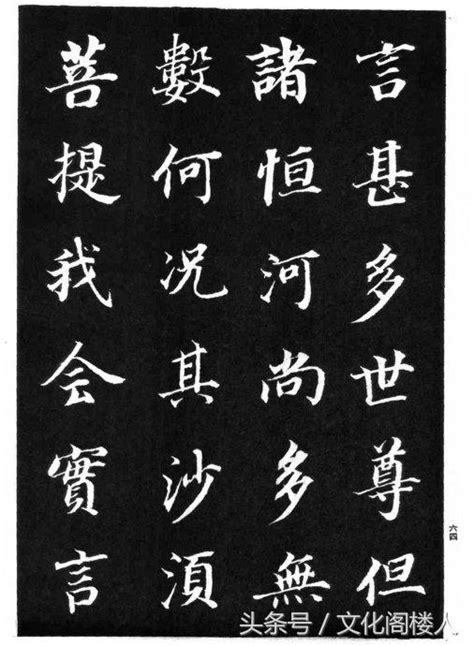 言甚多世尊但
諸恒河尚多無
數何况其沙湏
菩提我会實言
六四
头条号／文化阁楼人